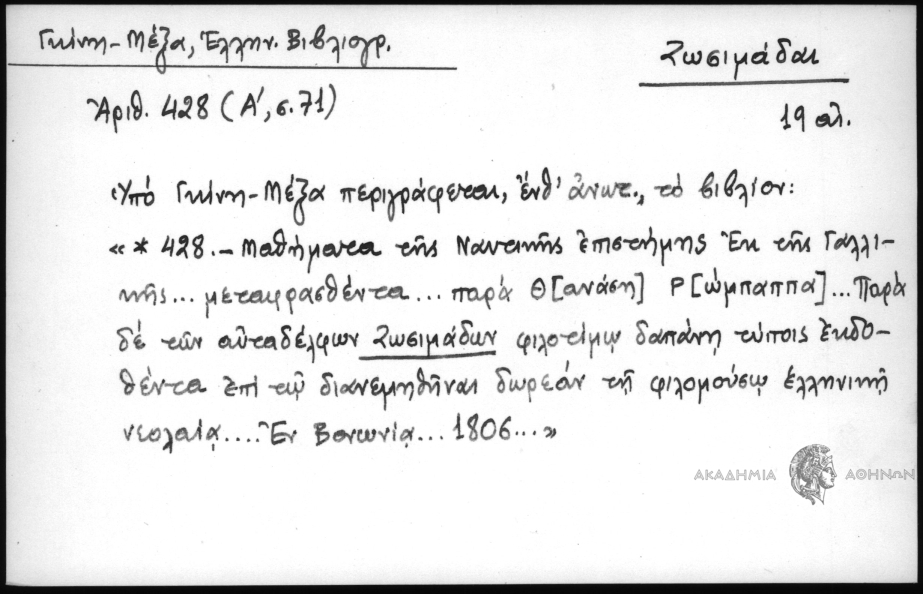 Γκίνη-Μέξα, Ἑλλην. Βιβλιογρ.
Ζωσιμάδαι
Ἀριθ. 428 (Α', σ. 71)
19 αἰ.
Ὑπό Γκίνη-Μέξα περιγράφεται, ἔνθ' ἀνωτ., τό βιβλίον:
«* 428.- Μαθήματα τῆς Ναυτικῆς ἐπιστήμης Ἐκ τῆς Γαλλι-
κῆς... μεταφρασθέντα... παρά Θ[ανάση] Ρ[ώμπαππα]... Παρά
δέ τῶν αὐταδέλφων Ζωσιμάδων φιλοτίμῳ δαπάνῃ τύποις ἐκδο-
θέντα ἐπί τῷ διανεμηθῆναι δωρεάν τῇ φιλομούσῳ ἑλληνικῇ
νεολαίᾳ.... Ἐν Βονωνίᾳ... 1806...»
ΑΚΑΔΗΜΙΑ ΑΘΗΝΩΝ